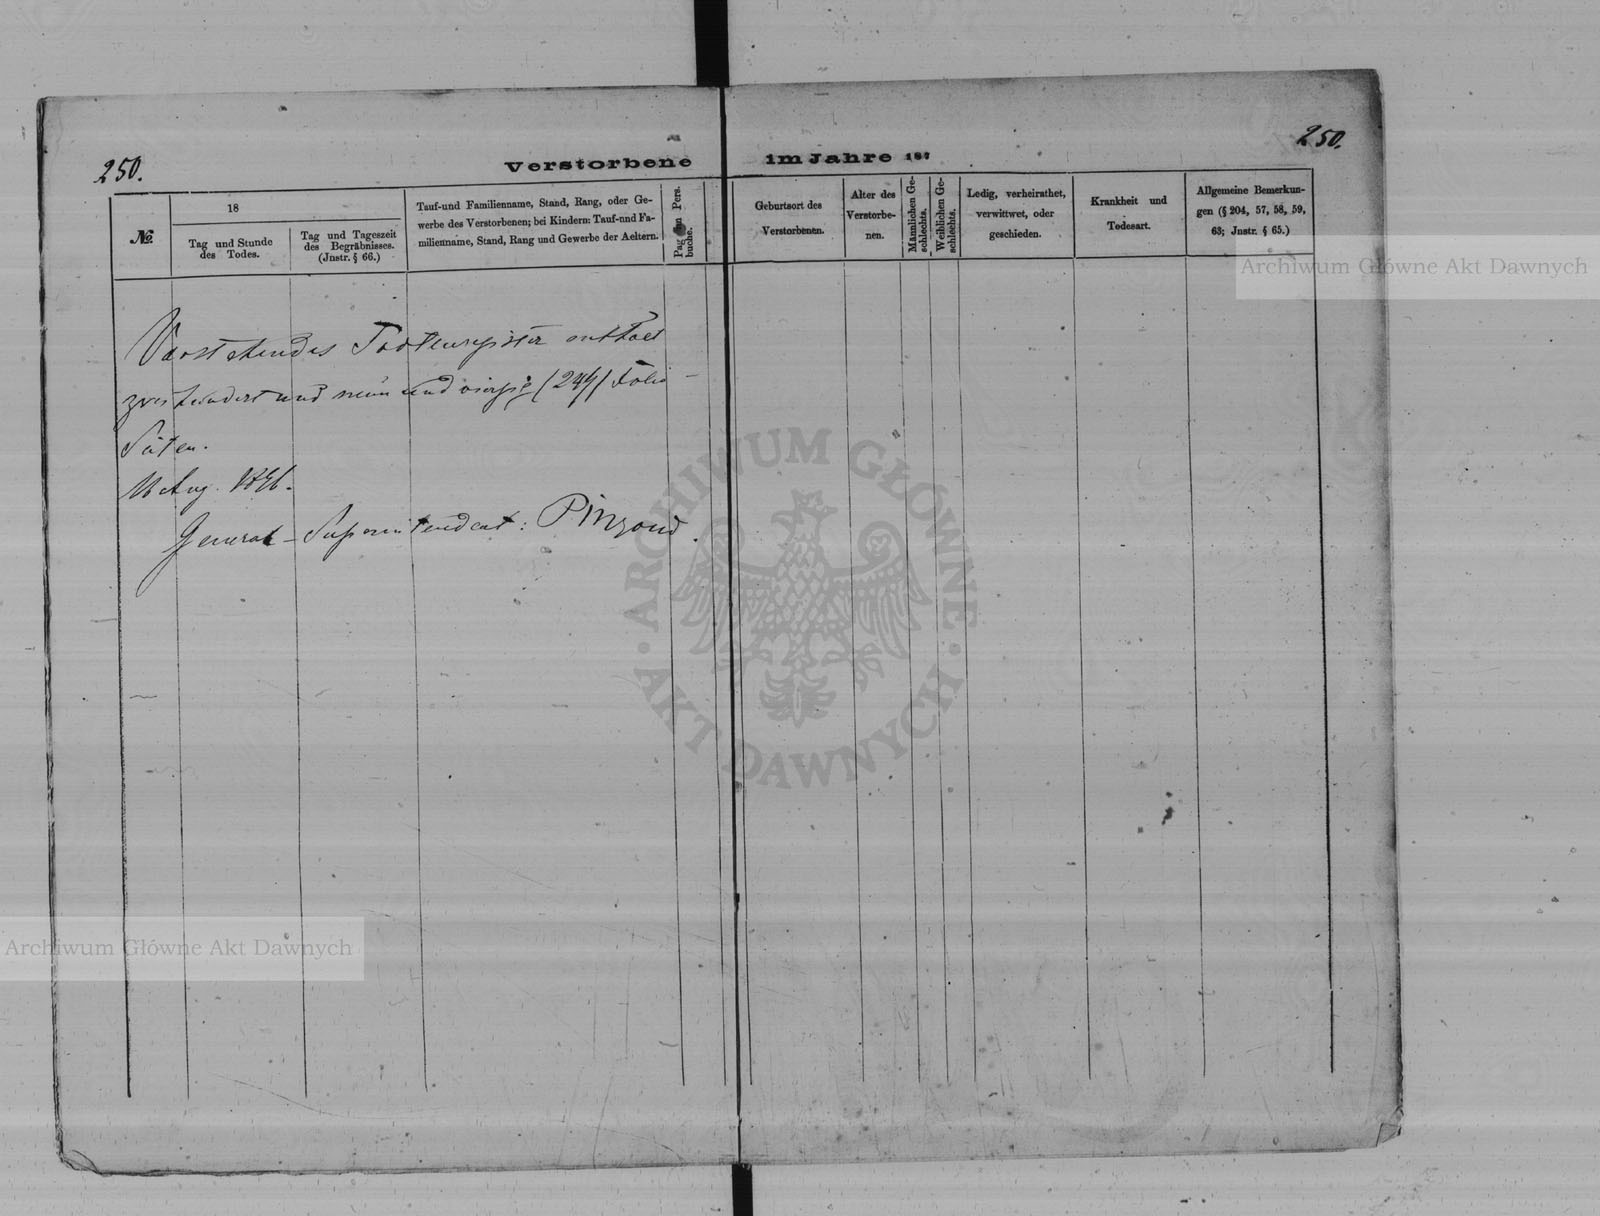 250.
250.
Verstorbene im Jahre 187
№
18
Tag und Stunde
des Todes.
Tag und Tageszeit
des Begräbnisses.
(Jnstr. § 66.)
Tauf-und Familienname, Stand, Rang, oder Ge-
werbe des Verstorbenen; bei Kindern: Tauf-und Fa-
milienname, Stand, Rang und Gewerbe der Aeltern.
Pag im Pers.
buche.
Geburtsort des
Verstorbenen.
Alter des
Verstorbe-
nen.
Männlichen Ge-
schlechts.
Weiblichen Ge-
schlechts.
Ledig, verheirathet,
verwittwet, oder
geschieden.
Krankheit und
Todesart.
Allgemeine Bemerkun-
gen (§ 204, 57, 58, 59,
63; Jnstr. § 65.)
Vorstehendes Todtenregister enthält
zweihundert und neun und vierzig (249) Folio-
Seiten.
Aug.
General-Superintendent:
Archiwum Główne Akt Dawnych
ARCHIWUM GŁÓWNE
AKT DAWNYCH
Archiwum Główne Akt Dawnych